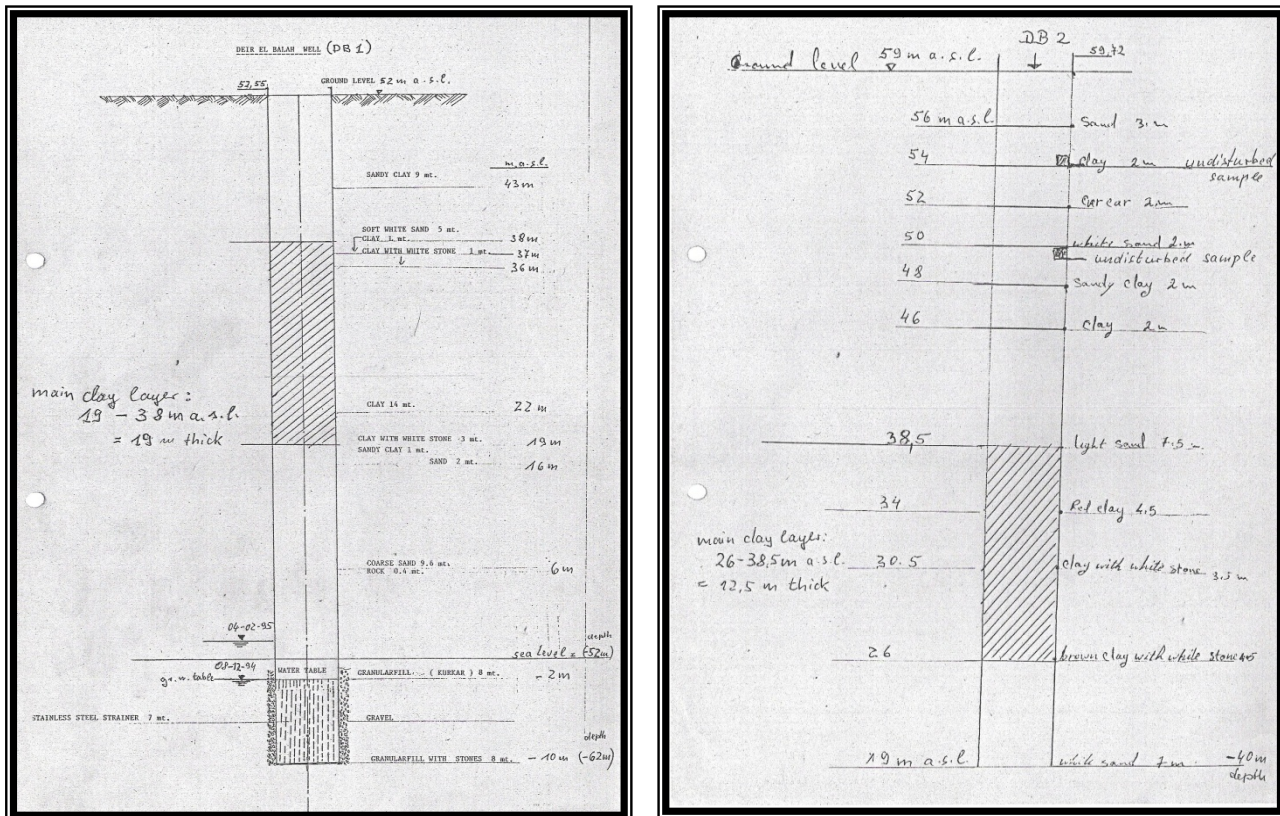 DEIR EL BALAH WELL (DB 1)
52,55
GROUND LEVEL 52 m a.s.l.
m.a.s.l.
SANDY CLAY 9 mt.
43m
SOFT WHITE SAND 5 mt.
38m
CLAY 1 mt.
37m
CLAY WITH WHITE STONE 1 mt.
36m
main clay layer:
19 - 38 m a.s.l.
= 19 m thick
CLAY 14 mt.
22 m
CLAY WITH WHITE STONE 3 mt.
19m
SANDY CLAY 1 mt.
SAND 2 mt.
16m
COARSE SAND 9.6 mt.
6m
ROCK 0.4 mt.
04-02-95
depth
sea level = (-52m)
08-12-94
WATER TABLE
gr.w.table
GRANULARFILL (KURKAR) 8 mt.
- 2m
STAINLESS STEEL STRAINER 7 mt.
GRAVEL
depth
GRANULARFILL WITH STONES 8 mt.
- 10m (-62m)
DB 2
59,72
Ground level 59 m a.s.l.
56 m a.s.l.
sand 3.m
54
clay 2m undisturbed
sample
52
curcar 2.m
50
white sand 2.m
undisturbed sample
48
Sandy clay 2m
46
clay 2m
38,5
light sand 7.5 m
34
Red clay 4,5
main clay layer:
26-38,5m a.s.l.
= 12,5 m thick
30.5
clay with white stone 3,5 m
26
brown clay with white stone 4.5
19 m a.s.l.
white sand 7 m.
-40m
depth